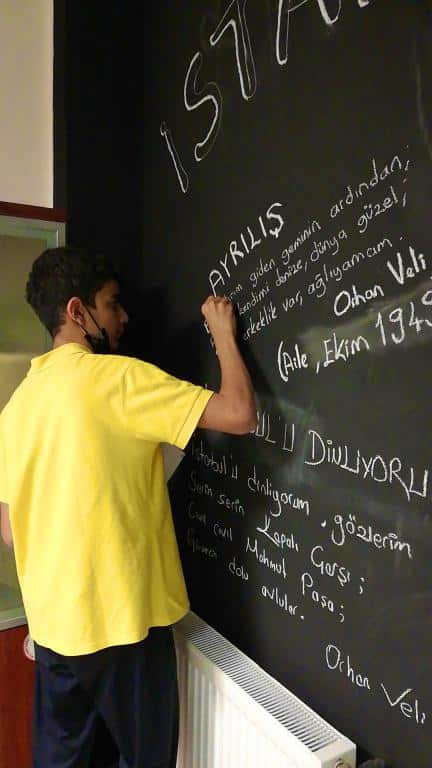 İSTA
AYRILIŞ
giden geminin ardından;
kendimi denize, dünya güzel;
erkeklik var, ağlıyamam.
Orhan Veli
(Aile, Ekim 1949
DİNLİYORU
İstanbul'u dinliyorum, gözlerim
Serin serin Kapalı Çarşı;
Cıvıl cıvıl Mahmut Paşa;
Güvercin dolu avlular.
Orhan Veli